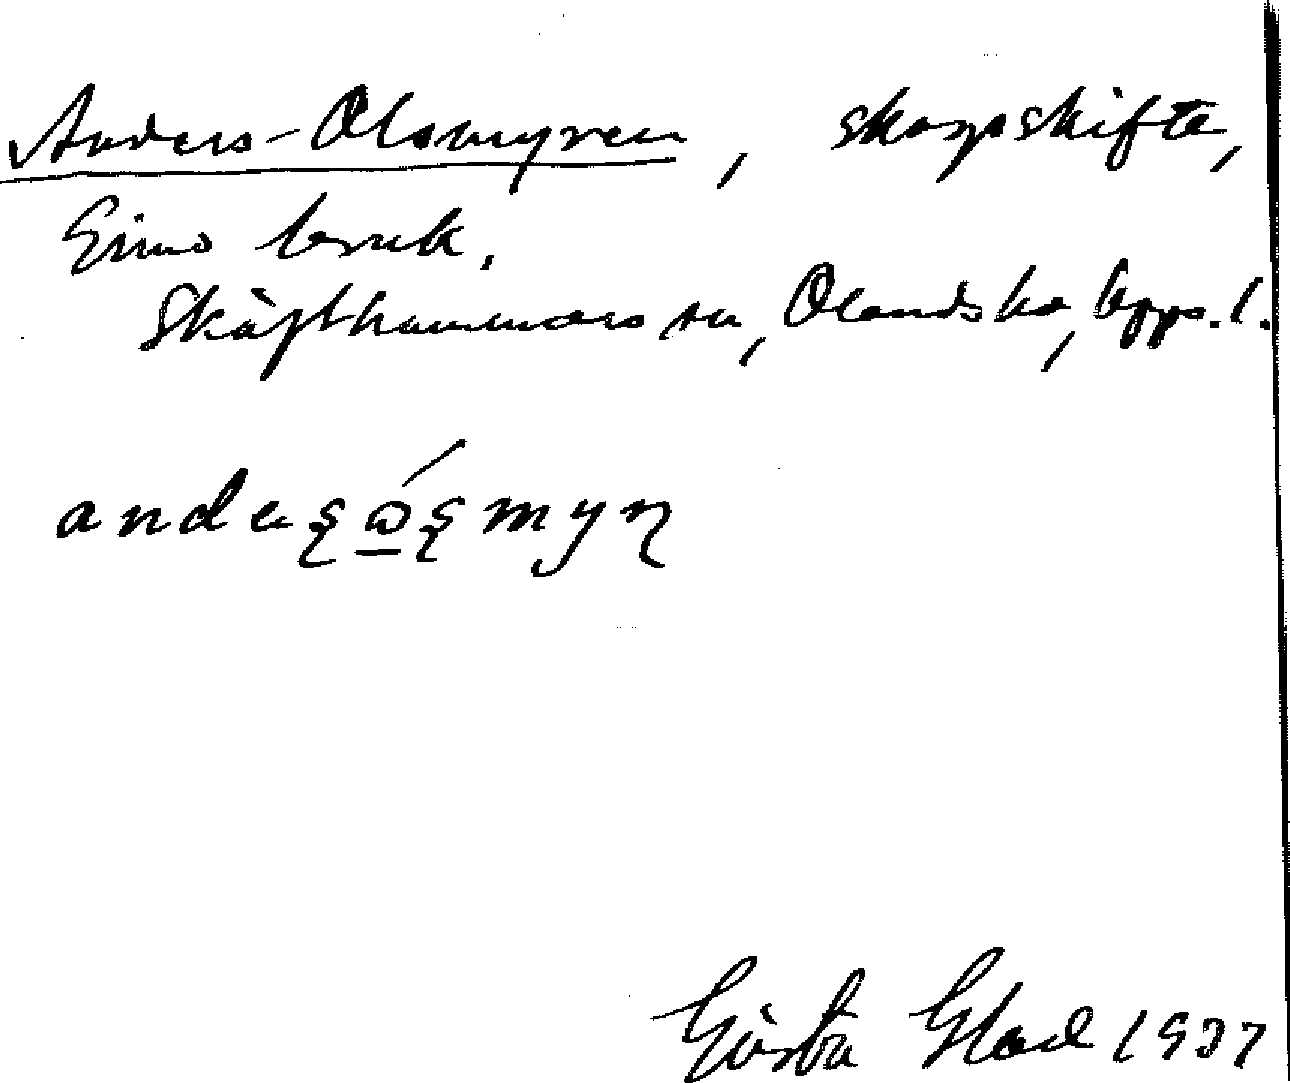 Anders-Olsmyren, skogsskifte,
Gimo bruk.
Skäfthammars sn, Olands hd, Upps. l.
Gösta Glad 1937